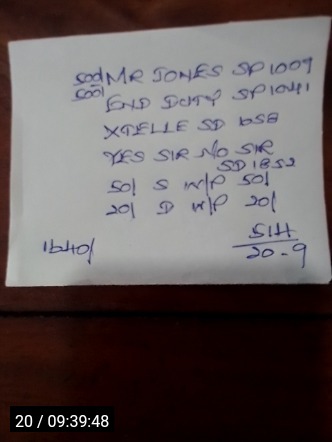 MR JONES SP 1009
END DUTY SP 1041
XTELLE SD 658
YES SIR NO SIR
SD 1852
50/ S W/P 50/
20/ D W/P 20/
514
20-9
20 / 09:39:48